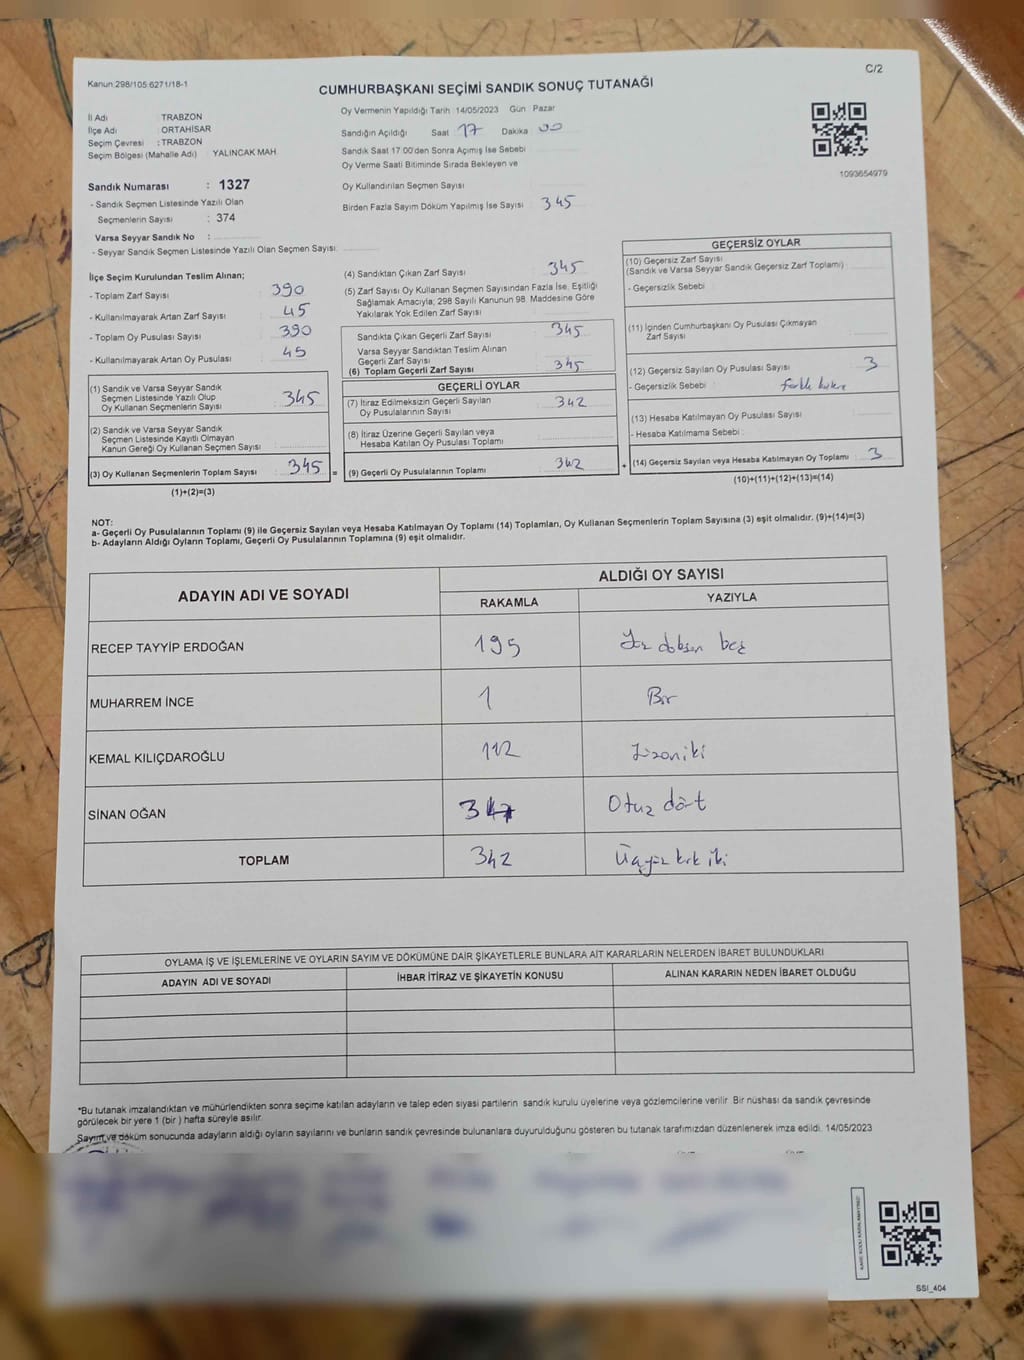 Kanun 298/105 6271/18-1
C/2
CUMHURBAŞKANI SEÇİMİ SANDIK SONUÇ TUTANAĞI
İl Adı : TRABZON
İlçe Adı : ORTAHİSAR
Seçim Çevresi : TRABZON
Seçim Bölgesi (Mahalle Adı) YALINCAK MAH.
Sandık Numarası : 1327
- Sandık Seçmen Listesinde Yazılı Olan
Seçmenlerin Sayısı : 374
Varsa Seyyar Sandık No :
- Seyyar Sandık Seçmen Listesinde Yazılı Olan Seçmen Sayısı:
Oy Vermenin Yapıldığı Tarih 14/05/2023 Gün Pazar
Sandığın Açıldığı Saat 17 Dakika 00
Sandık Saat 17:00'den Sonra Açımış İse Sebebi
Oy Verme Saati Bitiminde Sırada Bekleyen ve
Oy Kullandırılan Seçmen Sayısı
Birden Fazla Sayım Döküm Yapılmış İse Sayısı 345
1093654979
İlçe Seçim Kurulundan Teslim Alınan;
- Toplam Zarf Sayısı 390
- Kullanılmayarak Artan Zarf Sayısı 45
- Toplam Oy Pusulası Sayısı 390
- Kullanılmayarak Artan Oy Pusulası 45
(1) Sandık ve Varsa Seyyar Sandık
Seçmen Listesinde Yazılı Olup
Oy Kullanan Seçmenlerin Sayısı 345
(2) Sandık ve Varsa Seyyar Sandık
Seçmen Listesinde Kayıtlı Olmayan
Kanun Gereği Oy Kullanan Seçmen Sayısı
(3) Oy Kullanan Seçmenlerin Toplam Sayısı 345 =
(1)+(2)=(3)
(4) Sandıktan Çıkan Zarf Sayısı 345
(5) Zarf Sayısı Oy Kullanan Seçmen Sayısından Fazla İse, Eşitliği
Sağlamak Amacıyla; 298 Sayılı Kanunun 98. Maddesine Göre
Yakılarak Yok Edilen Zarf Sayısı
Sandıkta Çıkan Geçerli Zarf Sayısı 345
Varsa Seyyar Sandıktan Teslim Alınan
Geçerli Zarf Sayısı
(6) Toplam Geçerli Zarf Sayısı 345
GEÇERLİ OYLAR
(7) İtiraz Edilmeksizin Geçerli Sayılan
Oy Pusulalarının Sayısı 342
(8) İtiraz Üzerine Geçerli Sayılan veya
Hesaba Katılan Oy Pusulası Toplamı
(9) Geçerli Oy Pusulalarının Toplamı 342 +
GEÇERSİZ OYLAR
(10) Geçersiz Zarf Sayısı
(Sandık ve Varsa Seyyar Sandık Geçersiz Zarf Toplamı)
- Geçersizlik Sebebi
(11) İçinden Cumhurbaşkanı Oy Pusulası Çıkmayan
Zarf Sayısı
(12) Geçersiz Sayılan Oy Pusulası Sayısı 3
- Geçersizlik Sebebi :
(13) Hesaba Katılmayan Oy Pusulası Sayısı
- Hesaba Katılmama Sebebi :
(14) Geçersiz Sayılan veya Hesaba Katılmayan Oy Toplamı 3
(10)+(11)+(12)+(13)=(14)
NOT:
a- Geçerli Oy Pusulalarının Toplamı (9) ile Geçersiz Sayılan veya Hesaba Katılmayan Oy Toplamı (14) Toplamları, Oy Kullanan Seçmenlerin Toplam Sayısına (3) eşit olmalıdır. (9)+(14)=(3)
b- Adayların Aldığı Oyların Toplamı, Geçerli Oy Pusulalarının Toplamına (9) eşit olmalıdır.
ADAYIN ADI VE SOYADI
ALDIĞI OY SAYISI
RAKAMLA YAZIYLA
RECEP TAYYİP ERDOĞAN 195 Yüz doksan beş
MUHARREM İNCE 1 Bir
KEMAL KILIÇDAROĞLU 112 Yüzoniki
SİNAN OĞAN 34 Otuz dört
TOPLAM 342 Üçyüz kırk iki
OYLAMA İŞ VE İŞLEMLERİNE VE OYLARIN SAYIM VE DÖKÜMÜNE DAİR ŞİKAYETLERLE BUNLARA AİT KARARLARIN NELERDEN İBARET BULUNDUKLARI
ADAYIN ADI VE SOYADI İHBAR İTİRAZ VE ŞİKAYETİN KONUSU ALINAN KARARIN NEDEN İBARET OLDUĞU
*Bu tutanak imzalandıktan ve mühürlendikten sonra seçime katılan adayların ve talep eden siyasi partilerin sandık kurulu üyelerine veya gözlemcilerine verilir. Bir nüshası da sandık çevresinde
görülecek bir yere 1 (bir) hafta süreyle asılır.
Sayım ve döküm sonucunda adayların aldığı oyların sayılarını ve bunların sandık çevresinde bulunanlara duyurulduğunu gösteren bu tutanak tarafımızdan düzenlenerek imza edildi. 14/05/2023
KARE KODU KARALAMAYINIZ!
SSI_404